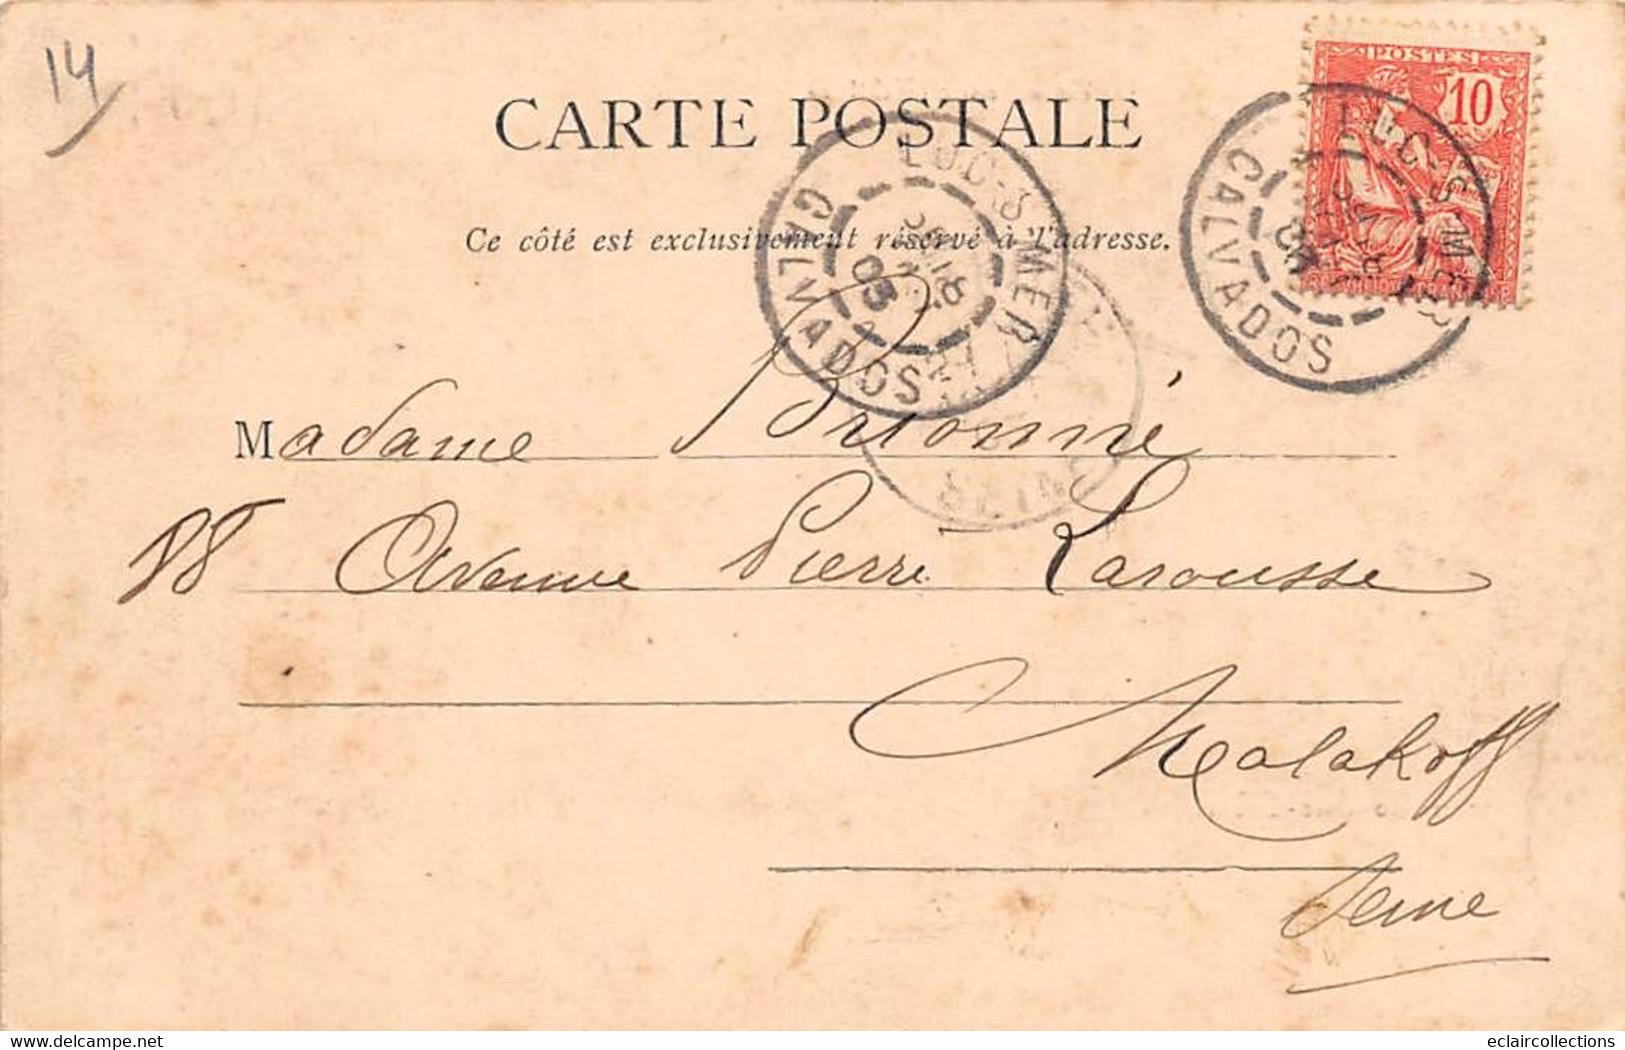 14
CARTE POSTALE
POSTES
10
LUC-S-MER
CALVADOS
LUC-S-MER
03
CALVADOS
Ce côté est exclusivement réservé à l'adresse.
SEINE
Madame Brionné
88 Avenue Pierre Larousse
Malakoff
Seine
eclaircollections